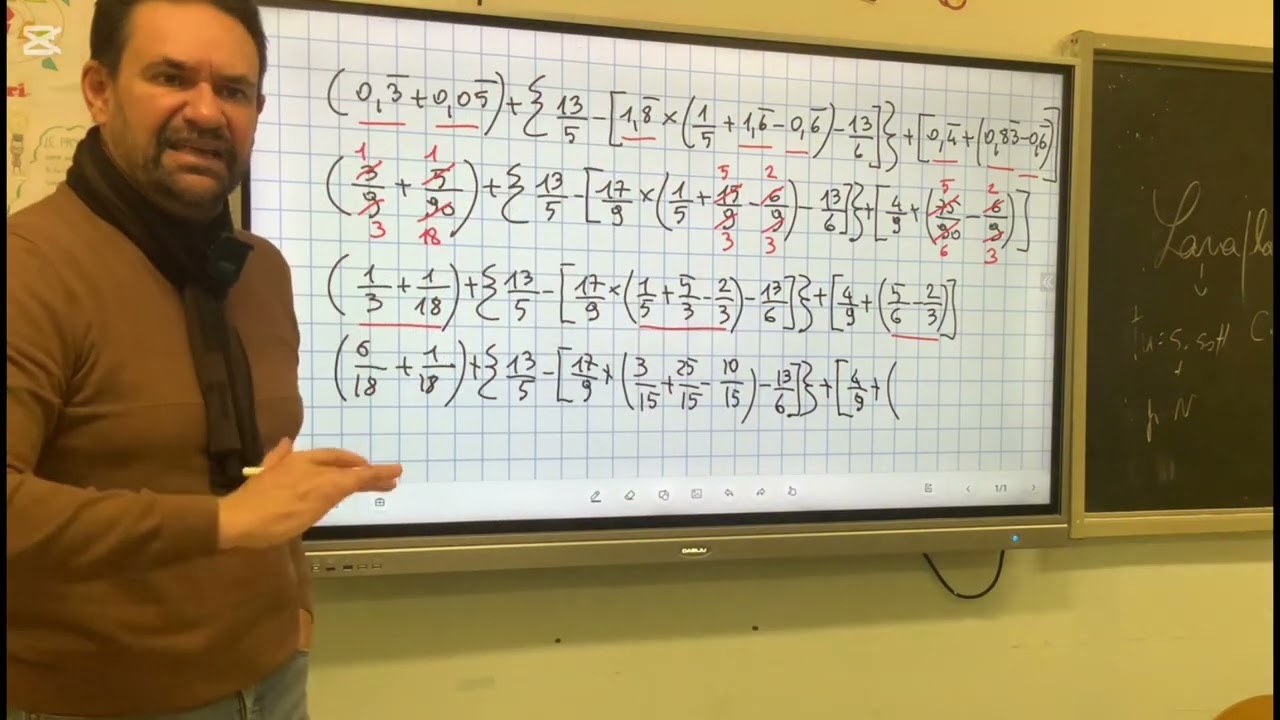 (0,3̅ + 0,05̅) + {13/5 − [1,8̅ × (1/5 + 1,6̅ − 0,6̅) − 13/6]} + [0,4̅ + (0,83̅ − 0,6̅)]
1 1 5 2 5 2
(3/9 + 5/90) + {13/5 − [17/9 × (1/5 + 15/9 − 6/9) − 13/6]} + [4/9 + (75/90 − 6/9)]
3 18 3 3 6 3
(1/3 + 1/18) + {13/5 − [17/9 × (1/5 + 5/3 − 2/3) − 13/6]} + [4/9 + (5/6 − 2/3)]
(6/18 + 1/18) + {13/5 − [17/9 × (3/15 + 25/15 − 10/15) − 13/6]} + [4/9 + (
1/1